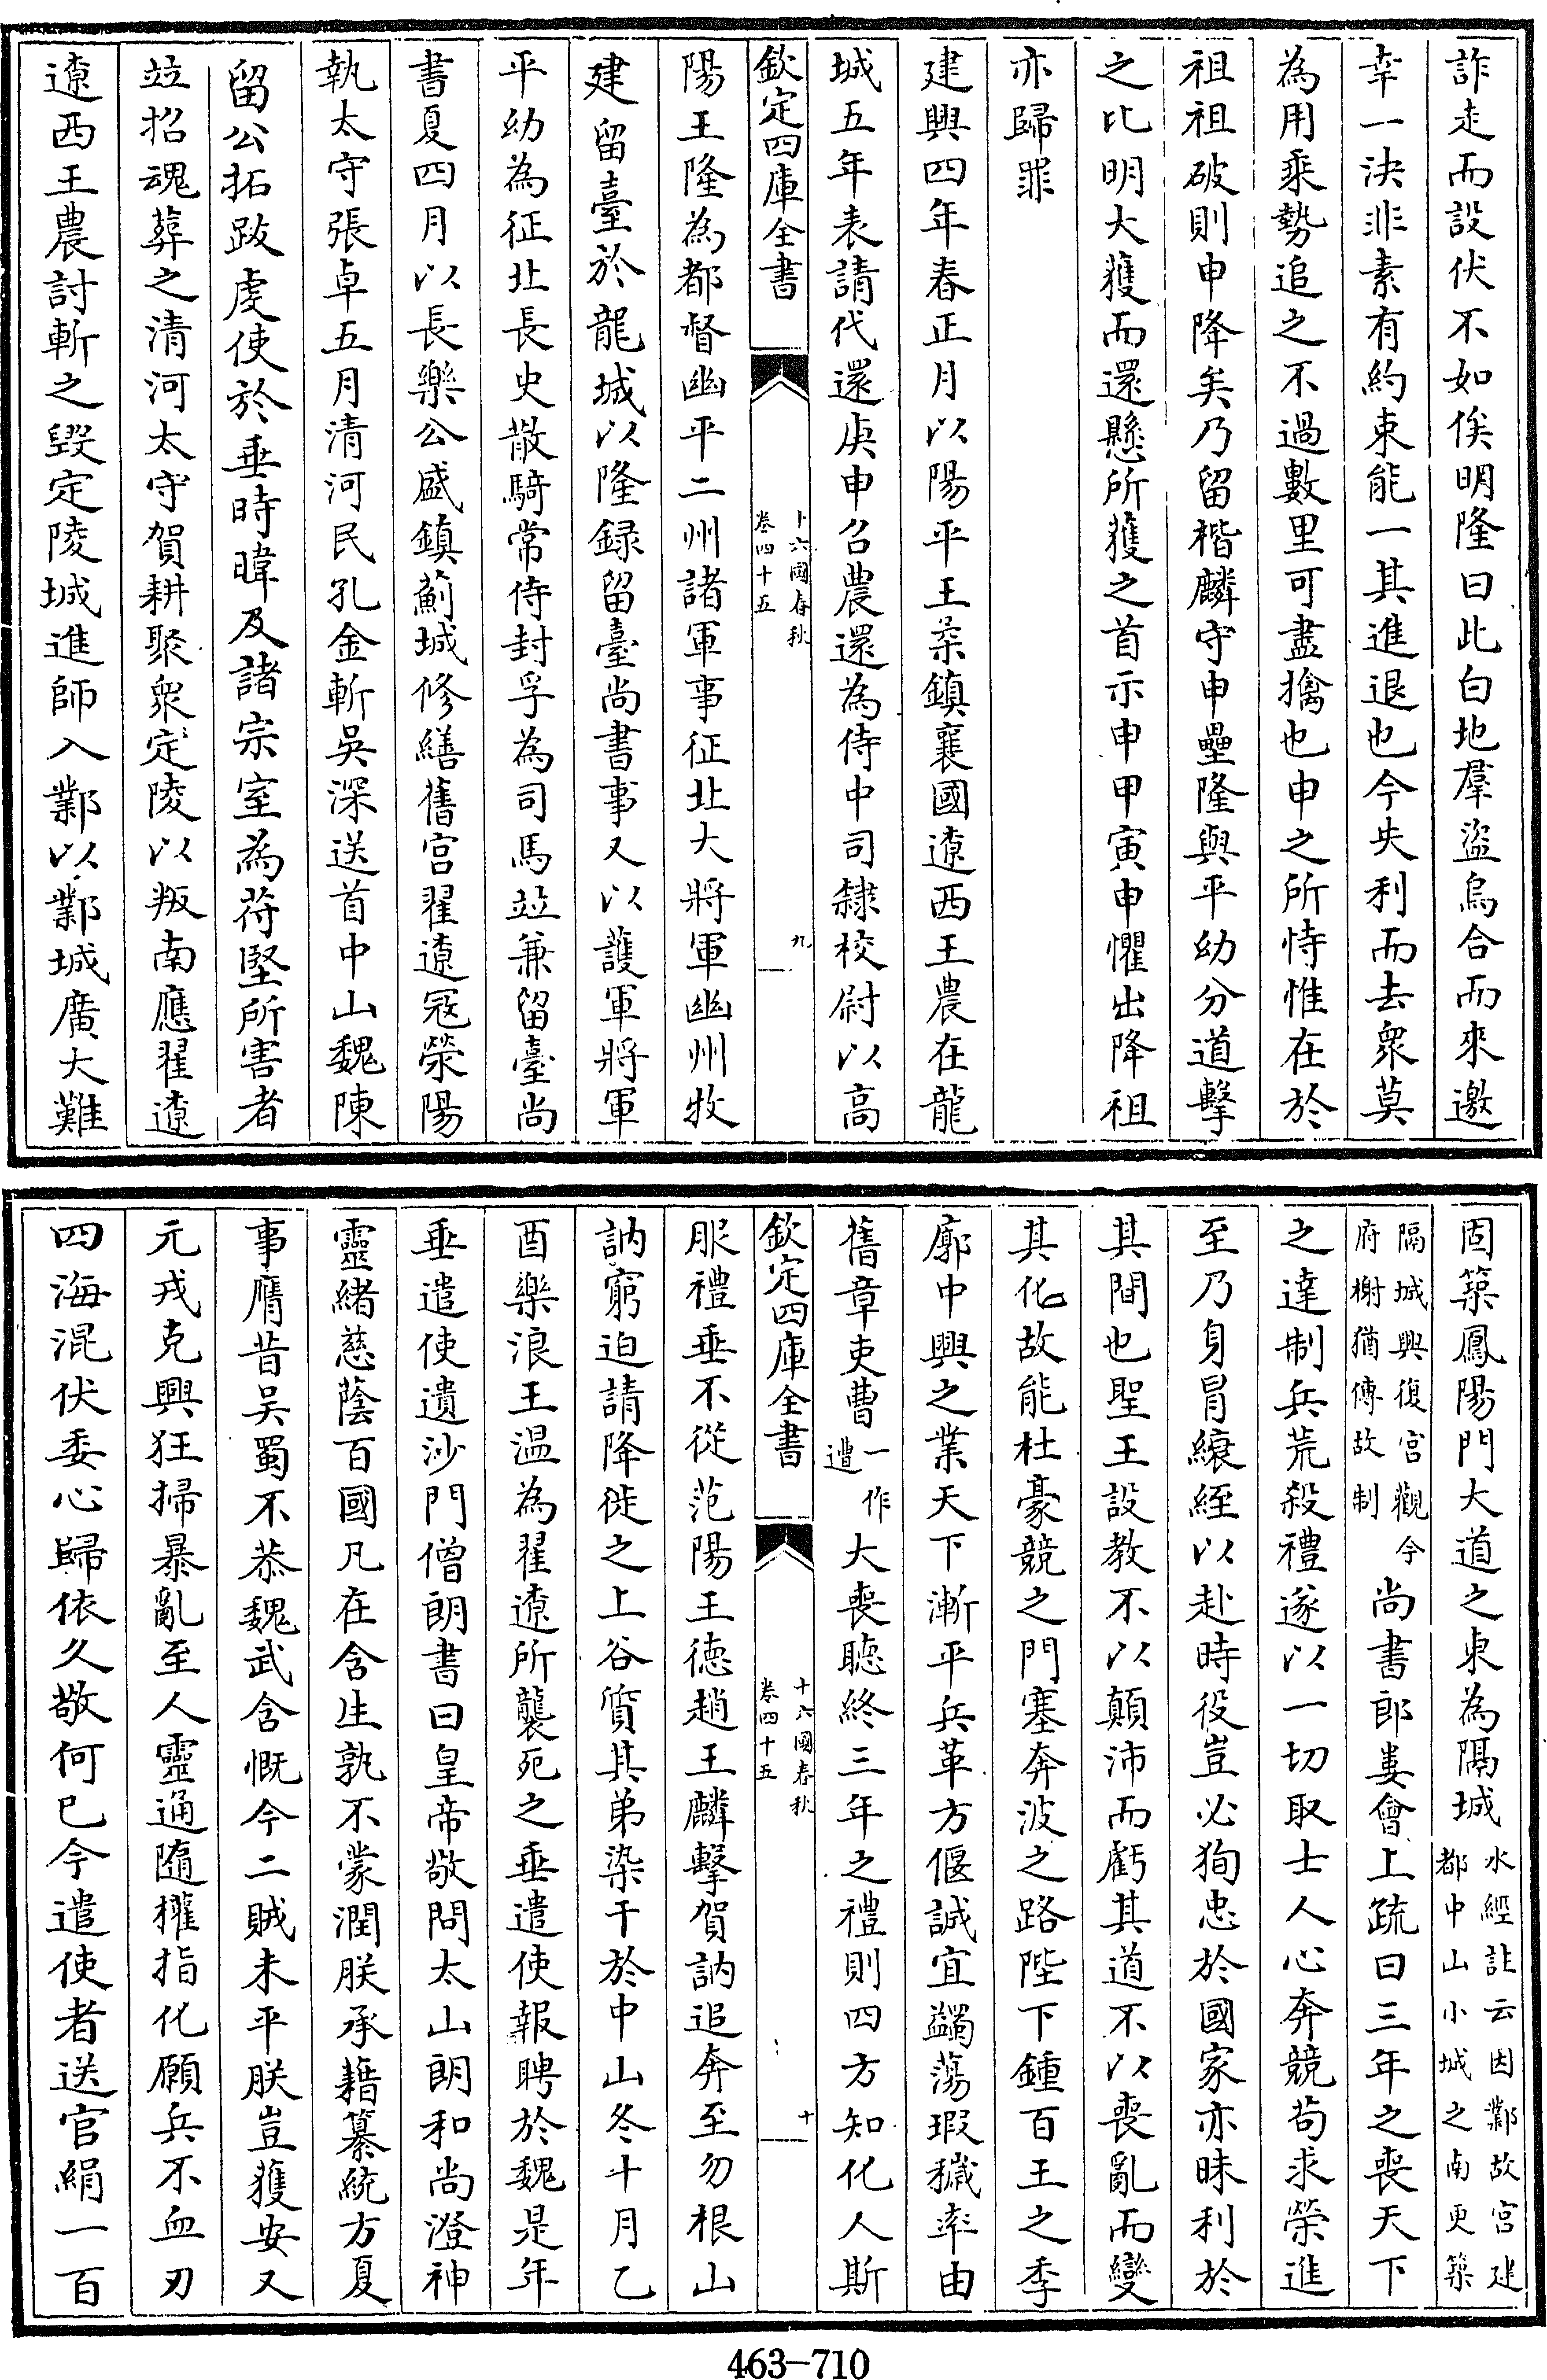 詐走而設伏不如俟明隆曰此白地羣盜烏合而來邀
幸一決非素有約束能一其進退也今失利而去衆莫
為用乘勢追之不過數里可盡擒也申之所恃惟在於
祖祖破則申降矣乃留楷麟守申壘隆與平幼分道擊
之比明大獲而還懸所獲之首示申甲寅申懼出降祖
亦歸罪
建興四年春正月以陽平王柔鎮襄國遼西王農在龍
城五年表請代還庚申召農還為侍中司隸校尉以高
欽定四庫全書
十六國春秋
卷四十五
九
陽王隆為都督幽平二州諸軍事征北大將軍幽州牧
建留臺於龍城以隆録留臺尚書事又以護軍將軍
平幼為征北長史散騎常侍封孚為司馬竝兼留臺尚
書夏四月以長樂公盛鎮薊城修繕舊宫翟遼寇滎陽
執太守張卓五月清河民孔金斬吳深送首中山魏陳
留公拓跋虔使於垂時暐及諸宗室為苻堅所害者
竝招魂葬之清河太守賀耕聚衆定陵以叛南應翟遼
遼西王農討斬之毀定陵城進師入鄴以鄴城廣大難
固築鳳陽門大道之東為隔城
水經註云因鄴故宫建
都中山小城之南更築
隔城興復宫觀今
府榭猶傳故制
尚書郎婁會上疏曰三年之喪天下
之達制兵荒殺禮遂以一切取士人心奔競茍求榮進
至乃身冒縗絰以赴時役豈必狥忠於國家亦昧利於
其間也聖王設教不以顛沛而虧其道不以喪亂而變
其化故能杜豪競之門塞奔波之路陛下鍾百王之季
廓中興之業天下漸平兵革方偃誠宜蠲蕩瑕穢率由
舊章吏曹
一作
遭
大喪聽終三年之禮則四方知化人斯
欽定四庫全書
十六國春秋
卷四十五
十
服禮垂不從范陽王德趙王麟擊賀訥追奔至勿根山
訥窮迫請降徙之上谷質其弟染干於中山冬十月乙
酉樂浪王温為翟遼所襲死之垂遣使報聘於魏是年
垂遣使遺沙門僧朗書曰皇帝敬問太山朗和尚澄神
靈緒慈蔭百國凡在含生孰不蒙潤朕承藉纂統方夏
事膺昔吴蜀不恭魏武含慨今二賊未平朕豈獲安又
元戎克興狂掃暴亂至人靈通隨權指化願兵不血刃
四海混伏委心歸依久敬何已今遣使者送官絹一百
463-710